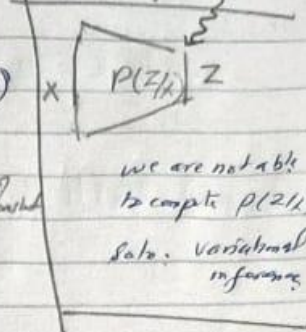 )
x P(Z/x) Z
we are not able
to compute P(Z/x
Soln. variational
inference